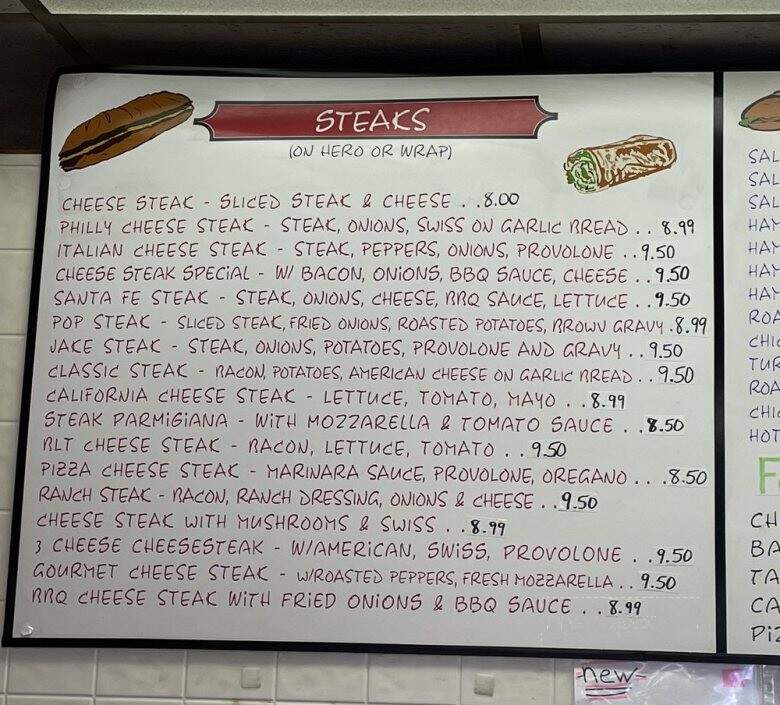 STEAKS
(ON HERO OR WRAP)
CHEESE STEAK - SLICED STEAK & CHEESE . .8.00
PHILLY CHEESE STEAK - STEAK, ONIONS, SWISS ON GARLIC BREAD . . 8.99
ITALIAN CHEESE STEAK - STEAK, PEPPERS, ONIONS, PROVOLONE . . 9.50
CHEESE STEAK SPECIAL - W/ BACON, ONIONS, BBQ SAUCE, CHEESE . . 9.50
SANTA FE STEAK - STEAK, ONIONS, CHEESE, BBQ SAUCE, LETTUCE . . 9.50
POP STEAK - SLICED STEAK, FRIED ONIONS, ROASTED POTATOES, BROWN GRAVY .8.99
JAKE STEAK - STEAK, ONIONS, POTATOES, PROVOLONE AND GRAVY . . 9.50
CLASSIC STEAK - BACON, POTATOES, AMERICAN CHEESE ON GARLIC BREAD . . 9.50
CALIFORNIA CHEESE STEAK - LETTUCE, TOMATO, MAYO . . 8.99
STEAK PARMIGIANA - WITH MOZZARELLA & TOMATO SAUCE . . 8.50
BLT CHEESE STEAK - BACON, LETTUCE, TOMATO . . 9.50
PIZZA CHEESE STEAK - MARINARA SAUCE, PROVOLONE, OREGANO . . . 8.50
RANCH STEAK - BACON, RANCH DRESSING, ONIONS & CHEESE . . 9.50
CHEESE STEAK WITH MUSHROOMS & SWISS . . 8.99
3 CHEESE CHEESESTEAK - W/AMERICAN, SWISS, PROVOLONE . . 9.50
GOURMET CHEESE STEAK - W/ROASTED PEPPERS, FRESH MOZZARELLA . . 9.50
BBQ CHEESE STEAK WITH FRIED ONIONS & BBQ SAUCE . . 8.99
SAL
SAL
SAL
HAM
HAM
HAM
HAM
ROA
CHIC
TUR
ROA
CHIC
HOT
F
CH
BA
TA
CA
PIZ
-new-